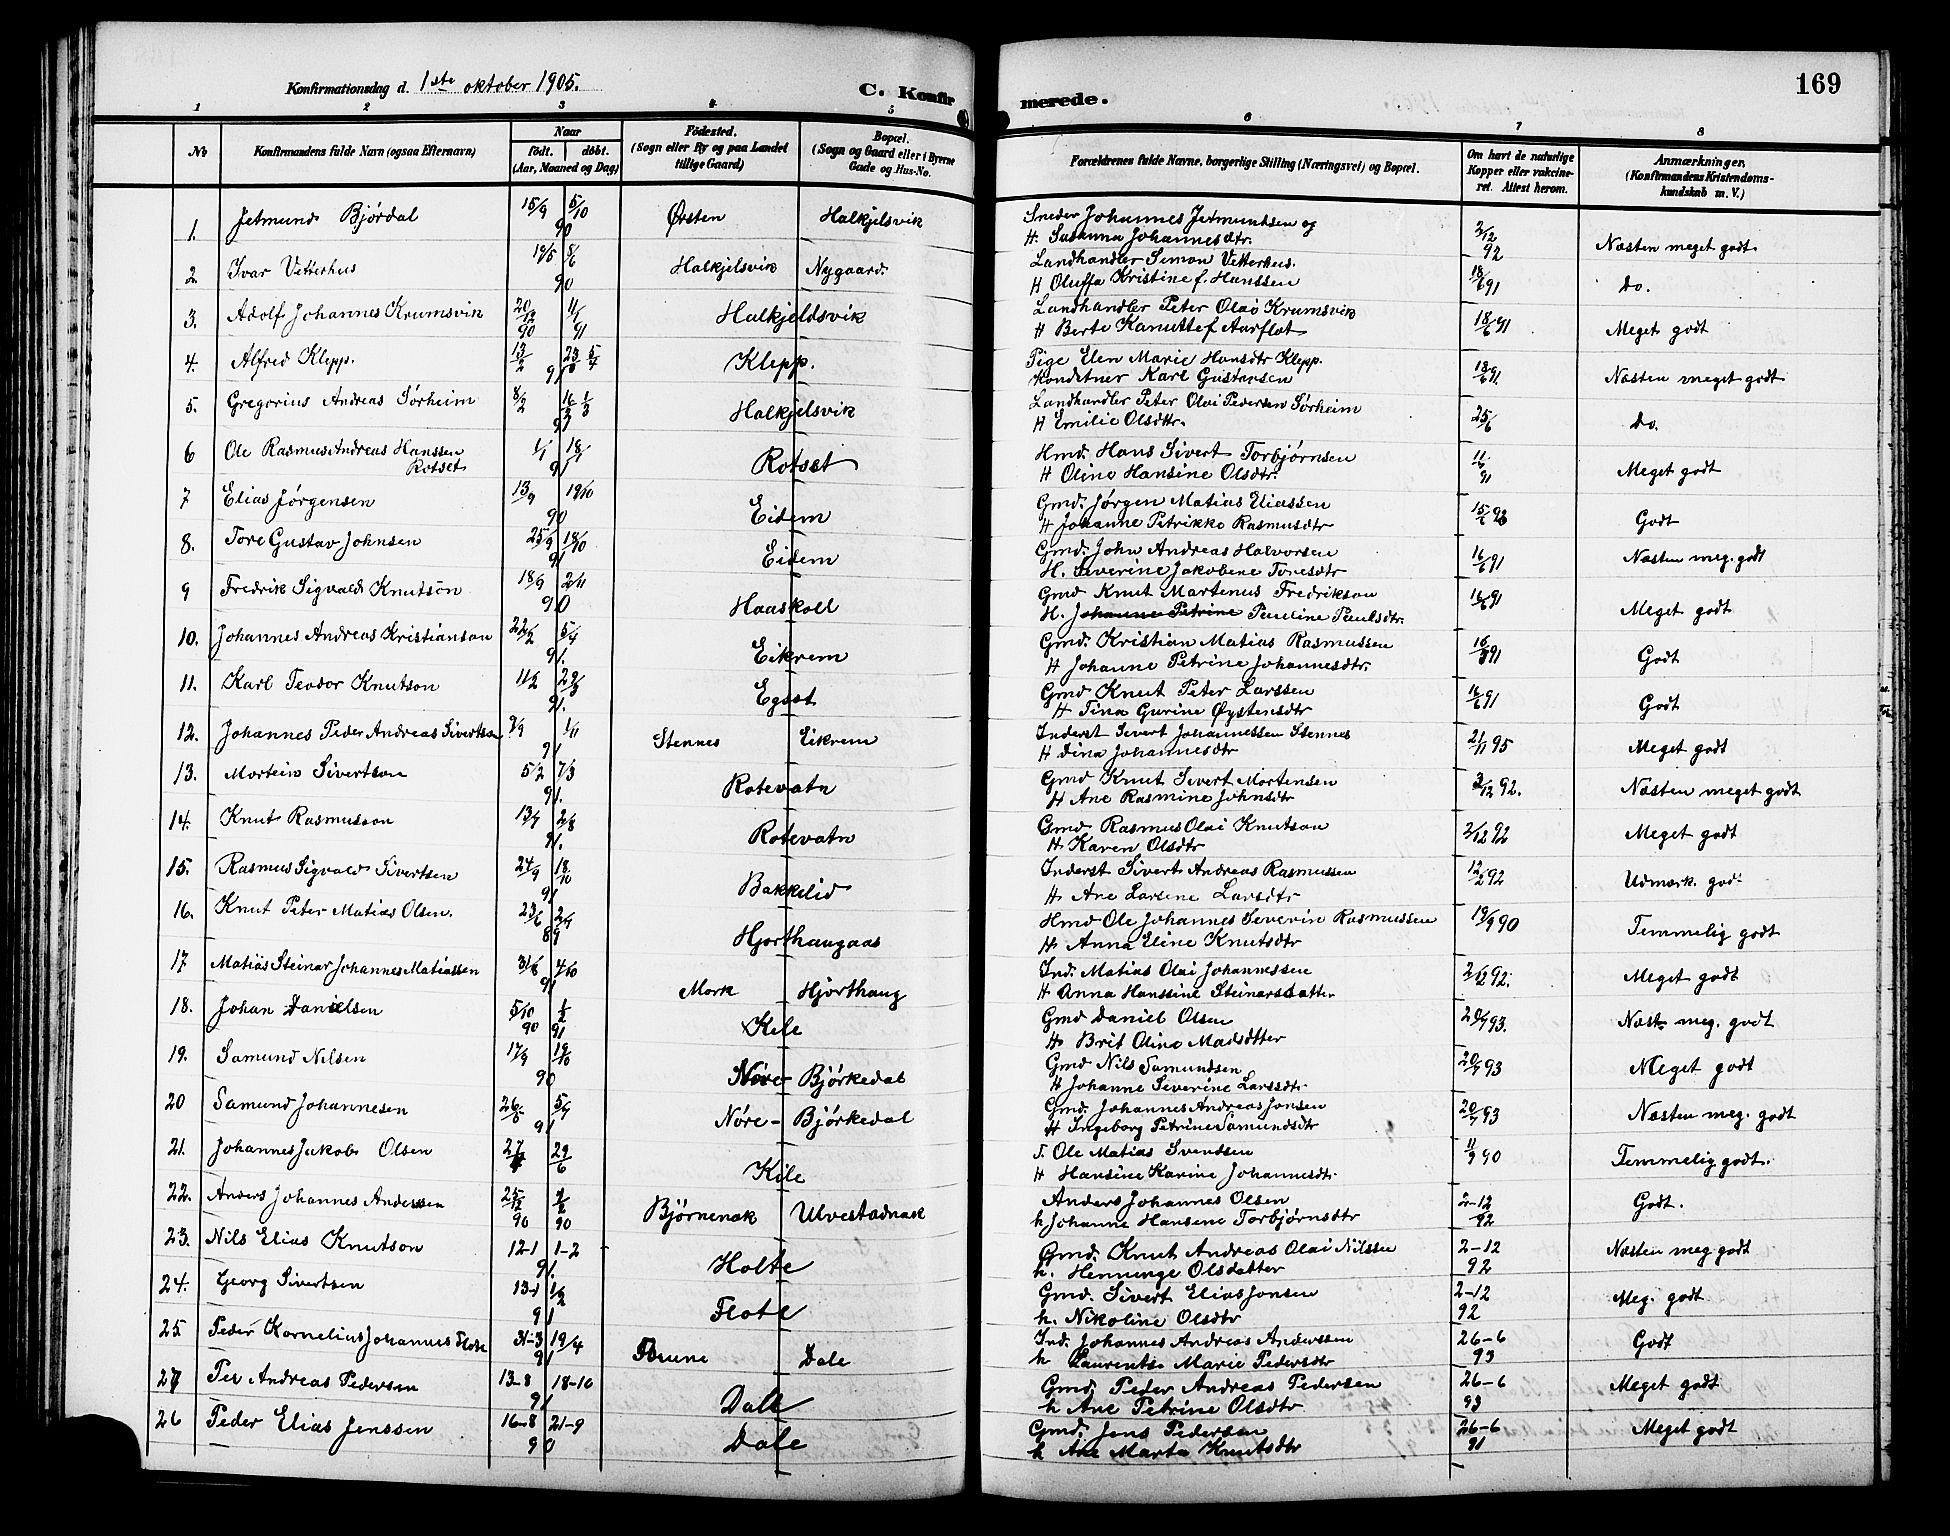 169
Konfirmationsdag d. 1ste oktober 1905.
C. Konfirmerede.
1 2 3 4 5 6 7 8
No
Konfirmandens fulde Navn (ogsaa Efternavn)
Naar
født. døbt.
(Aar, Maaned og Dag)
Fødested.
(Sogn eller By og paa Landet
tillige Gaard)
Bopæl.
(Sogn og Gaard eller i Byerne
Gade og Hus-No.
Forældrenes fulde Navne, borgerlige Stilling (Næringsvei) og Bopæl.
Om havt de naturlige
Kopper eller vakcine-
ret. Attest herom.
Anmærkninger.
(Konfirmandens Kristendoms-
kundskab m. V.)
1. Jetmund Bjørdal 15/9 5/10 90 Ørsten Halkjelsvik Snedker Johannes Jetmundsen og 2/12 92 Næsten meget godt
H. Susanna Johannesdtr.
2. Ivar Vetterhus 19/5 8/6 90 Halkjelsvik Nygaard. Landhandler Simon Vetterhus. 18/6 91 Do.
H Oluffa Kristine f. Hanssen
3. Adolf Johannes Krumsvik 20/12 90 11/1 91 Halkjeldsvik Landhandler Peter Olai Krumsvik 18/6 91 Meget godt
H Berte Kanutte f Aarflot
4. Alfred Klepp. 13/2 91 Klepp. Pige Elen Marie Hansdtr Klepp. 18/6 91. Næsten meget godt
Konditner Karl Gustavsen
5. Gregorius Andreas Sørheim 8/2 91 Halkjelsvik Landhandler Peter Olai Pedersen Sørheim 25/6 Do.
H Emilie Olsdtr.
6 Ole Rasmus Andreas Hanssen Rotset 1/1 18/1 91 Rotset Hmd. Hans Sivert Torbjørnsen 91 Meget godt
H Oline Hansine Olsdtr.
7 Elias Jørgensen 13/9 19/10 90 Eidem Gmd. Jørgen Matias Eliassen Godt
H Johanne Petrikke Rasmusdtr
8. Tore Gustav Johnsen 25/9 18/10 91. Eidem Gmd. John Andreas Halvorsen 16/6 91 Næsten meg. godt
H. Severine Jakobene Toresdtr
9 Fredrik Sigvald Knutson 18/9 2/11 90 Haaskoll Gmd Knut Martenus Fredrikson 16/6 91 Meget godt
H. Johanne Petrine Pauline Paulsdtr.
10. Johannes Andreas Kristianson 22/2 5/4 91. Eikrem Gmd. Kristian Matias Rasmussen 91 Godt
H Johanne Petrine Johannesdtr.
11. Karl Teodor Knutson 11/2 22/3 91. Egset Gmd Knut Peter Larssen 16/6 91 Godt
H Tina Gurine Øystensdtr
12. Johannes Peder Andreas Sivertson 1/11 91. Stennes Eikrem Inderst Sivert Johannessen Stennes 21/11 95 Meget godt
H Dina Johannesdtr
13. Mortein Sivertson 5/2 7/3 91. Rotevatn Gmd Knut Sivert Mortensen 2/12 92. Næsten meget godt
H Ane Rasmine Johnsdtr
14. Knut Rasmusson 13/7 2/8 91. Rotevatn Gmd Rasmus Olai Knutson 2/12 92 Meget godt
H Karen Olsdtr
15. Rasmus Sigvald Sivertsen 24/9 18/10 91 Bakkelid Inderst Sivert Andreas Rasmussen 12/2 92 Udmærk. godt
H Ane Larsene Larsdtr
16. Knut Peter Matias Olsen. 23/6 89 Hjorthaugaas Hmd Ole Johannes Severin Rasmussen 19/9 90 Temmelig godt
H Anna Eline Knutsdtr
17 Matias Steinar Johannes Matiassen 31/8 4/10 91 Mork Hjorthaug Ind. Matias Olai Johannessen 2/12 92. Meget godt
H Anna Hanssine Steinarsdatter
18. Johan Danielsen 5/10 90 1/2 91 Kile Gmd Daniel Olsen 20/7 93. Næst. meg. godt
H Brit Oline Madsdtter
19. Samund Nilsen 17/9 19/10 90 Nøre- Bjørkedal Gmd Nils Samundsen 20/7 93 Meget godt
H Johanne Severine Larssdtr
20 Samund Johannesen 91 Nøre- Bjørkedal Gmd. Johannes Andreas Jonsen 20/7 93 Næsten meg. godt
H Ingeborg Petrine Samundsdtr
21. Johannes Jakob Olsen 29/6 Kile Ole Matias Svendsen 11/9 90 Temmelig godt.
H Hansine Karine Johannesdtr
22. Anders Johannes Anderssen 90 90 Bjørnenak Ulvestadnak Anders Johannes Olsen 2-12 92 Godt.
h Johanne Hansene Torbjørnsdtr
23. Nils Elias Knutson 12-1 1-2 91. Holte Gmd. Knut Andreas Olai Nilssen 2-12 92 Næsten meg godt
h. Henninge Olsdatter
24. Georg Sivertsen 13-1 91 Flote Gmd. Sivert Elias Jonsen 2-12 92 Meg. godt
h. Nikoline Olsdtr
25. Peder Kornelius Johannes Flote 31-3 19/4 91 Dale Ind. Johannes Andreas Anderssen 26-6 93 Godt
h Laurentse Marie Pedersdtr
27 Per Andreas Pedersen 13-8 18-10 91 Dale Gmd. Peder Andreas Pedersen 26-6 93 Meget godt
h Ane Petrine Olsdtr
26 Peder Elias Jenssen 16-8 21-9 90 Dale Gmd. Jens Pedersen 26-6 91 Meget godt
h Ane Marta Knutsdtr